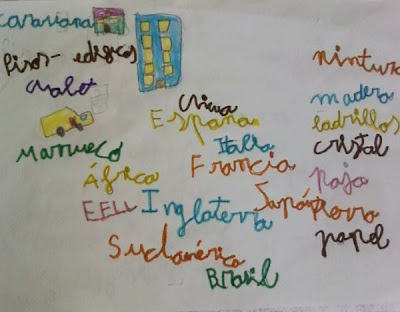 caravana
Pisos- edificos
chalet
China
España
Italia
Marrueco
Francia
África
EEUU
Inglaterra
Japón
Sudamérica
Brasil
pintura
madera
ladrillos
cristal
paja
papel